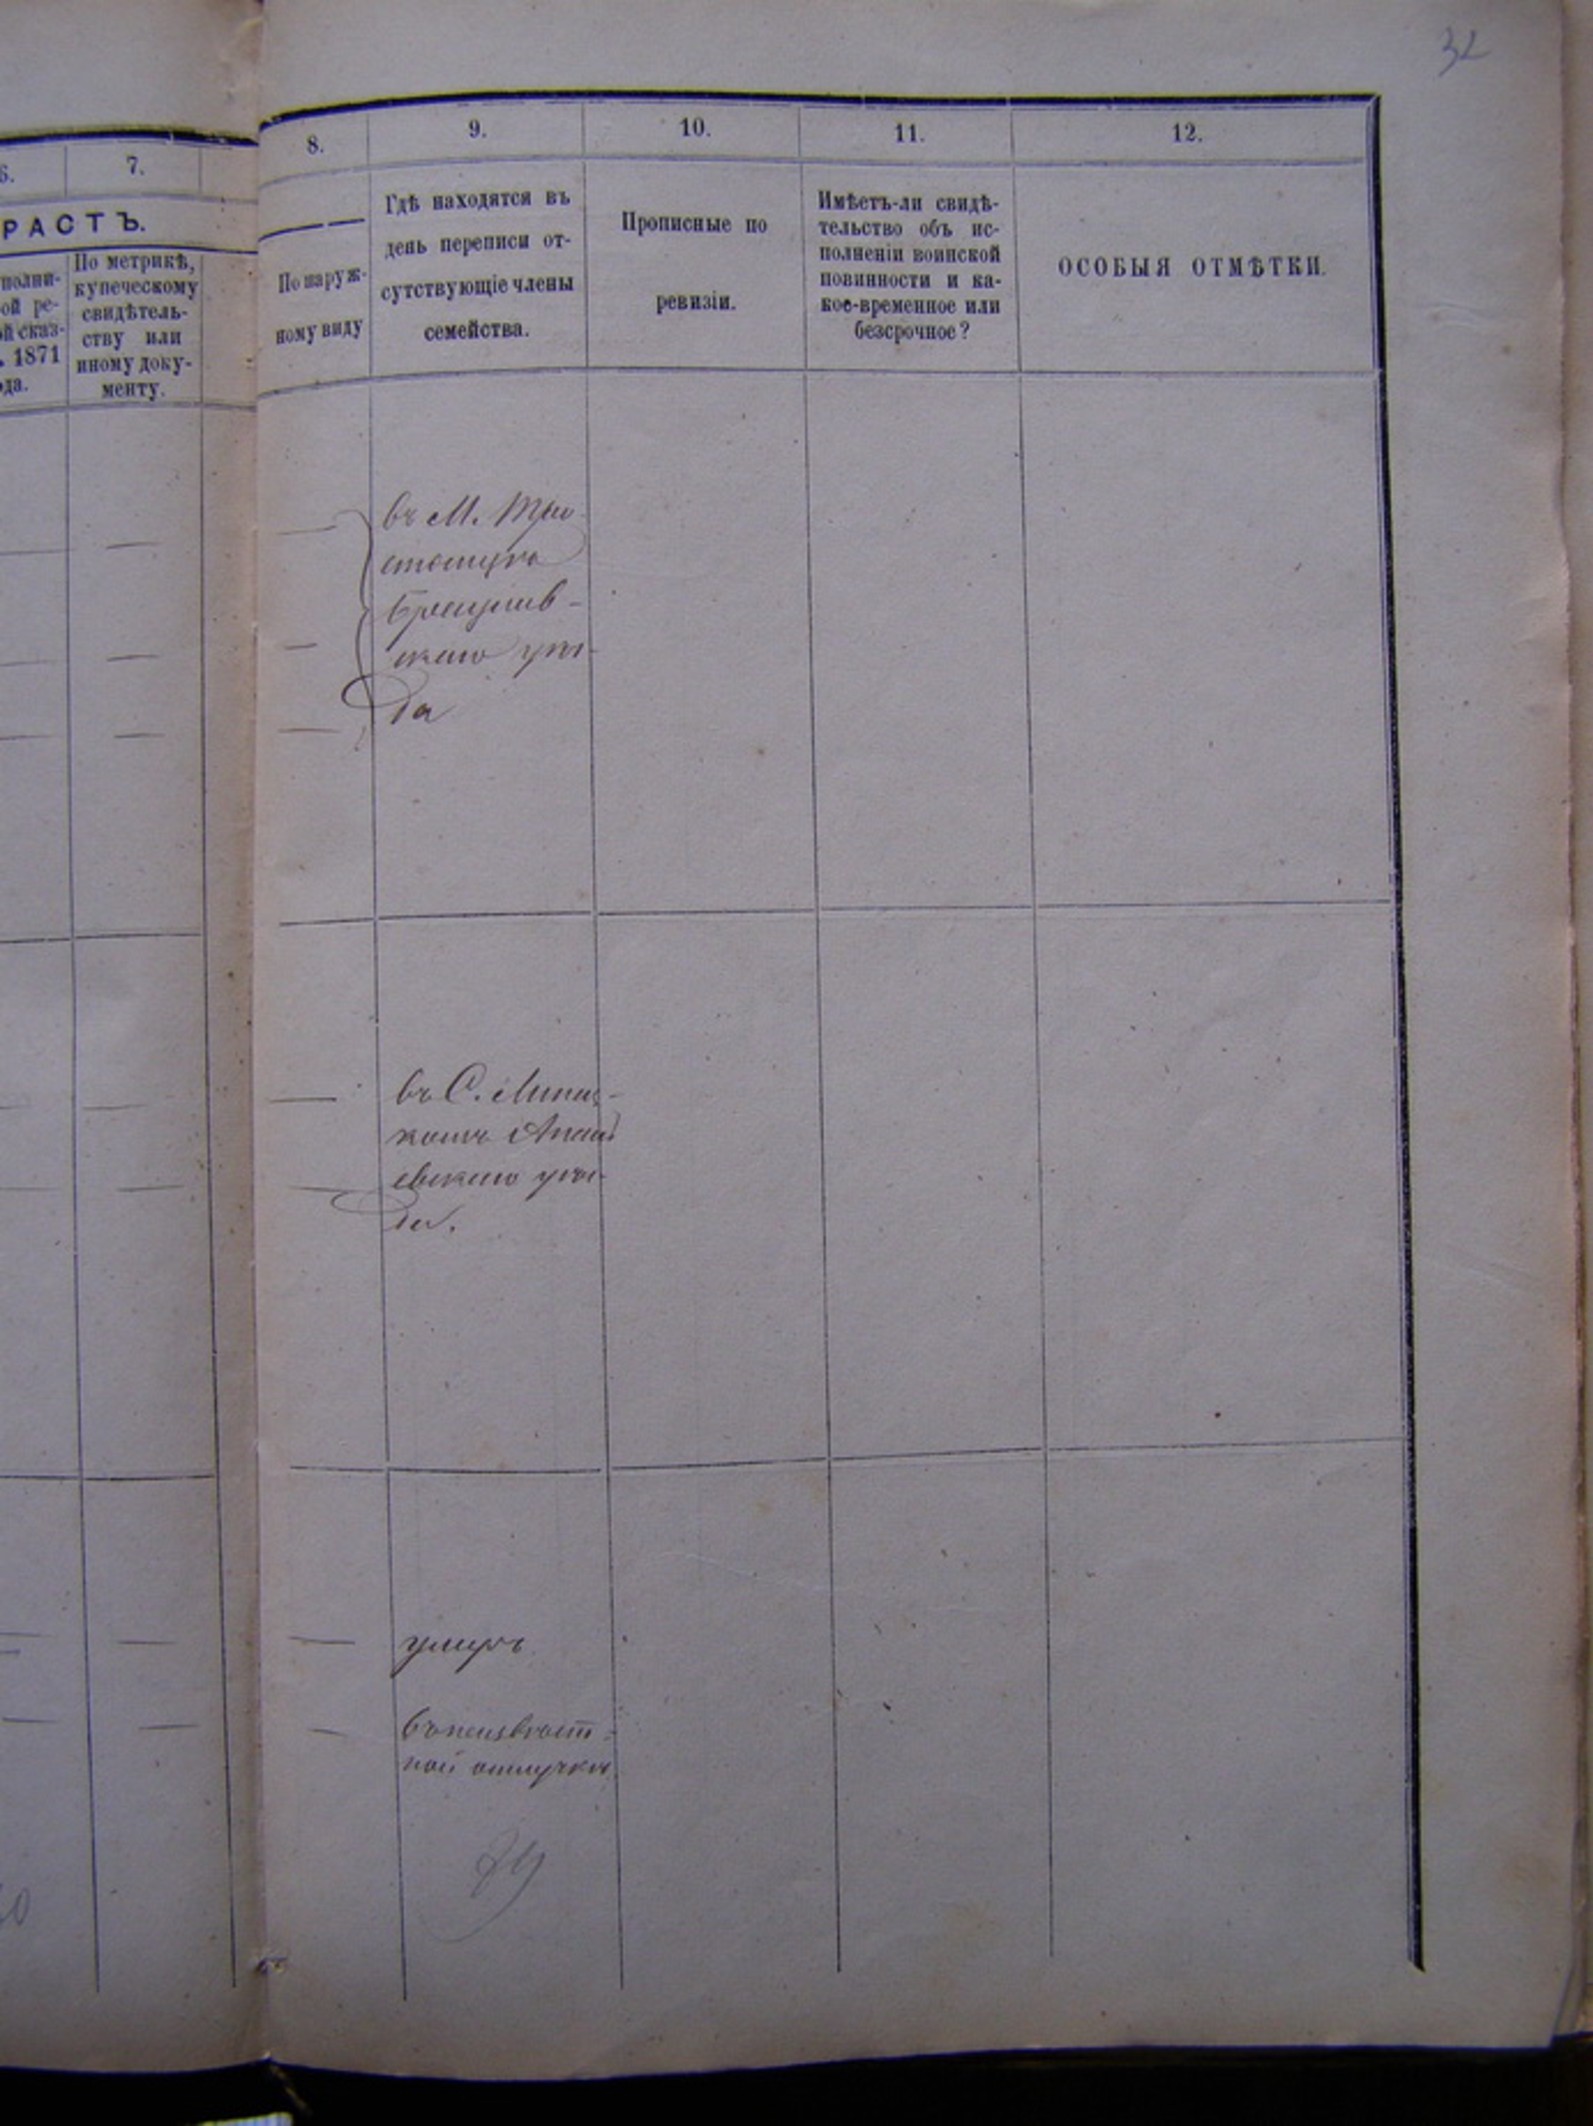 32
6.
7.
РАСТЪ.
полни-
ой ре-
ой сказ-
. 1871
ода.
По метрикѣ,
купеческому
свидѣтель-
ству или
иному доку-
менту.
8.
По наруж-
ному виду
9.
Гдѣ находятся въ
день переписи от-
сутствующіе члены
семейства.
10.
Прописные по
ревизіи.
11.
Имѣетъ-ли свидѣ-
тельство объ ис-
полненіи воинской
повинности и ка-
кое-временное или
безсрочное?
12.
ОСОБЫЯ ОТМѢТКИ.
въ М.
скаго уѣз-
да
въ С.
евскаго уѣз-
да.
умеръ
Въ неизвѣст-
ной отлучкѣ